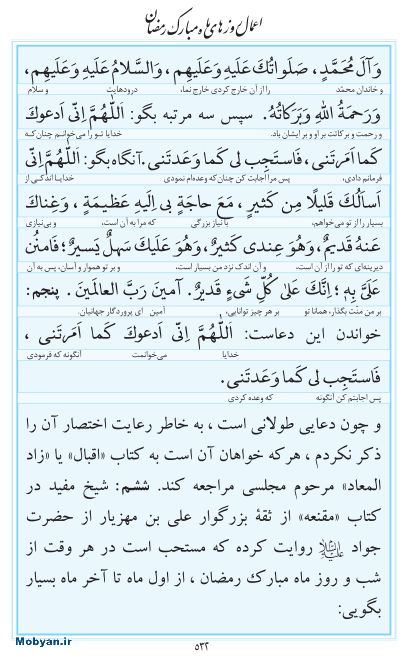 اعمال روزهای ماه مبارک رمضان
وَآلَ مُحَمَّدٍ، صَلَواتُكَ عَلَيهِ وَعَلَيهِم، وَالسَّلامُ عَلَيهِ وَعَلَيهِم،
و خاندان محمّد را از آن خارج کردی خارج نما، درودهایت و سلام
وَرَحمَةُ اللهِ وَبَرَكاتُهُ. سپس سه مرتبه بگو: اَللّٰهُمَّ اِنّى اَدعوكَ
و رحمت و برکاتت بر او و بر ایشان باد. خدایا تو را می‌خوانم چنان‌که
كَما اَمَرتَنى، فَاستَجِب لى كَما وَعَدتَنى. آنگاه بگو: اَللّٰهُمَّ اِنّى
فرمانم دادی، پس مرا اجابت کن چنان‌که وعده‌ام نمودی خدایا اندکی از
اَسأَلُكَ قَليلًا مِن كَثيرٍ، مَعَ حاجَةٍ بى اِلَيهِ عَظيمَةٍ، وَغِناكَ
بسیار را از تو می‌خواهم، با نیاز بزرگی که مرا به آن است، و بی‌نیازی
عَنهُ قَديمٌ، وَهُوَ عِندى كَثيرٌ، وَهُوَ عَلَيكَ سَهلٌ يَسيرٌ؛ فَامنُن
دیرینه‌ای که تو را از آن است، و آن اندک نزد من بسیار است، و بر تو هموار و آسان، پس به آن
عَلَىَّ بِهِ؛ اِنَّكَ عَلىٰ كُلِّ شَىءٍ قَديرٌ. آمينَ رَبَّ العالَمينَ. پنجم:
بر من منّت بگذار، همانا تو بر هر چیز توانایی، آمین ای پروردگار جهانیان.
خواندن این دعاست: اَللّٰهُمَّ اِنّى اَدعوكَ كَما اَمَرتَنى ،
خدایا می‌خوانمت آنگونه که فرمودی
فَاستَجِب لى كَما وَعَدتَنى.
پس اجابتم کن آنگونه که وعده کردی
و چون دعایی طولانی است ، به خاطر رعایت اختصار آن را
ذکر نکردم ، هرکه خواهان آن است به کتاب «اقبال» یا «زاد
المعاد» مرحوم مجلسی مراجعه کند. ششم: شیخ مفید در
کتاب «مقنعه» از ثقهٔ بزرگوار علی بن مهزیار از حضرت
جواد علیه‌السلام روایت کرده که مستحب است در هر وقت از
شب و روز ماه مبارک رمضان ، از اول ماه تا آخر ماه بسیار
بگویی:
۵۳۲
Mobyan.ir